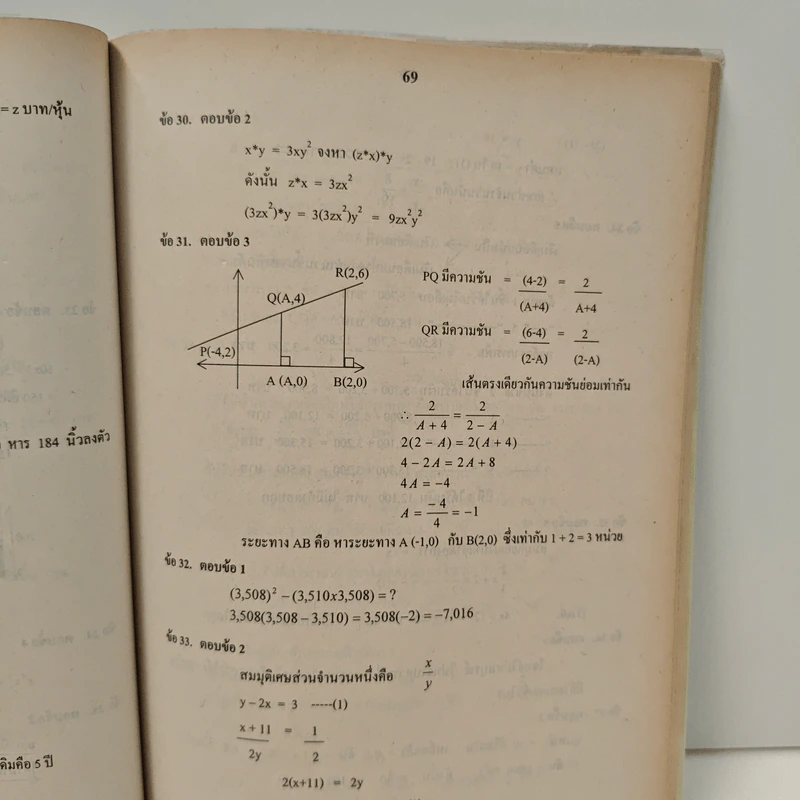 69
= z บาท/หุ้น
หาร 184 นิ้วลงตัว
ดิมคือ 5 ปี
ข้อ 30. ตอบข้อ 2
x*y = 3xy² จงหา (z*x)*y
ดังนั้น z*x = 3zx²
(3zx²)*y = 3(3zx²)y² = 9zx²y²
ข้อ 31. ตอบข้อ 3
R(2,6)
Q(A,4)
P(-4,2)
A (A,0) B(2,0)
PQ มีความชัน = (4-2) = 2
(A+4) A+4
QR มีความชัน = (6-4) = 2
(2-A) (2-A)
เส้นตรงเดียวกันความชันย่อมเท่ากัน
∴ 2/(A + 4) = 2/(2 − A)
2(2 − A) = 2(A + 4)
4 − 2A = 2A + 8
4A = −4
A = −4/4 = −1
ระยะทาง AB คือ หาระยะทาง A (-1,0) กับ B(2,0) ซึ่งเท่ากับ 1 + 2 = 3 หน่วย
ข้อ 32. ตอบข้อ 1
(3,508)² − (3,510x3,508) = ?
3,508(3,508 − 3,510) = 3,508(−2) = −7,016
ข้อ 33. ตอบข้อ 2
สมมุติเศษส่วนจำนวนหนึ่งคือ x/y
y − 2x = 3 -----(1)
x + 11 = 1
2y 2
2(x+11) = 2y